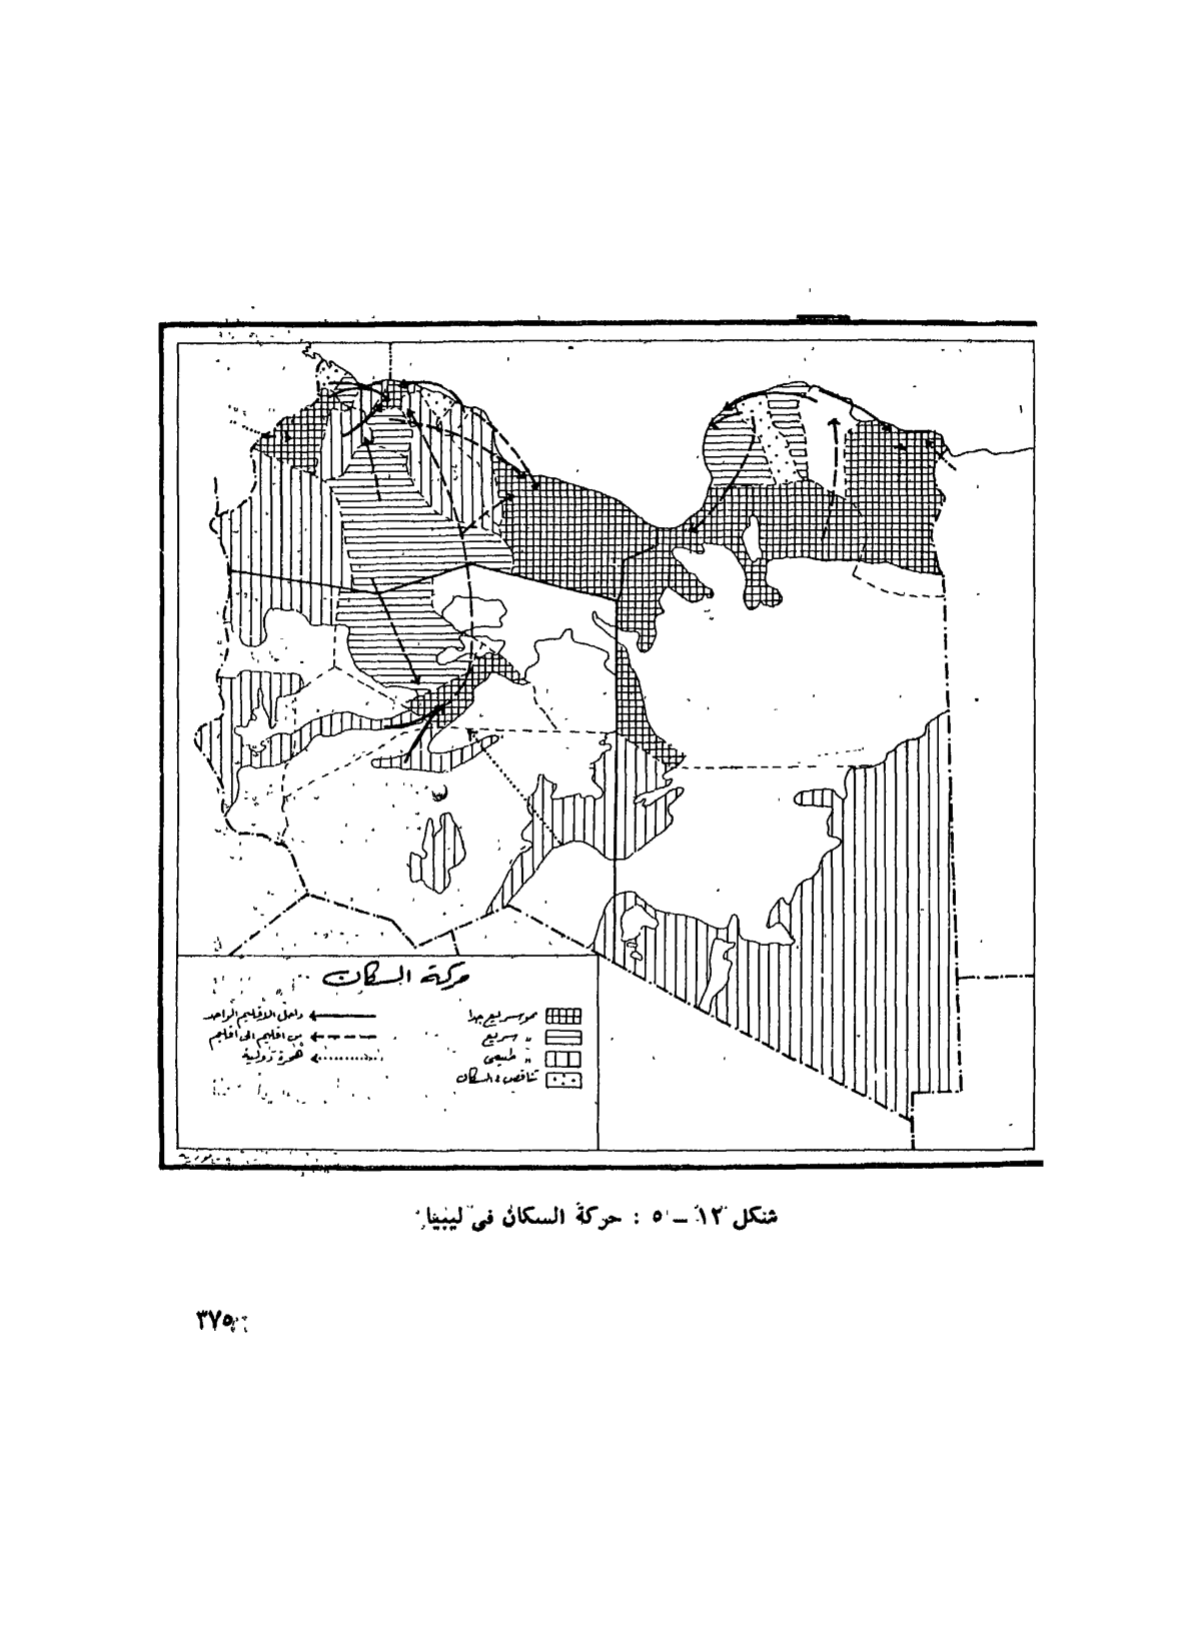 حركة السكان
نمو سريع جدا
" سريع
" طبيعى
تناقص السكان
داخل الاقليم الواحد
من اقليم الى اقليم
هجرة دولية
شكل ١٢ – ٥ : حركة السكان فى ليبيا
٣٧٥